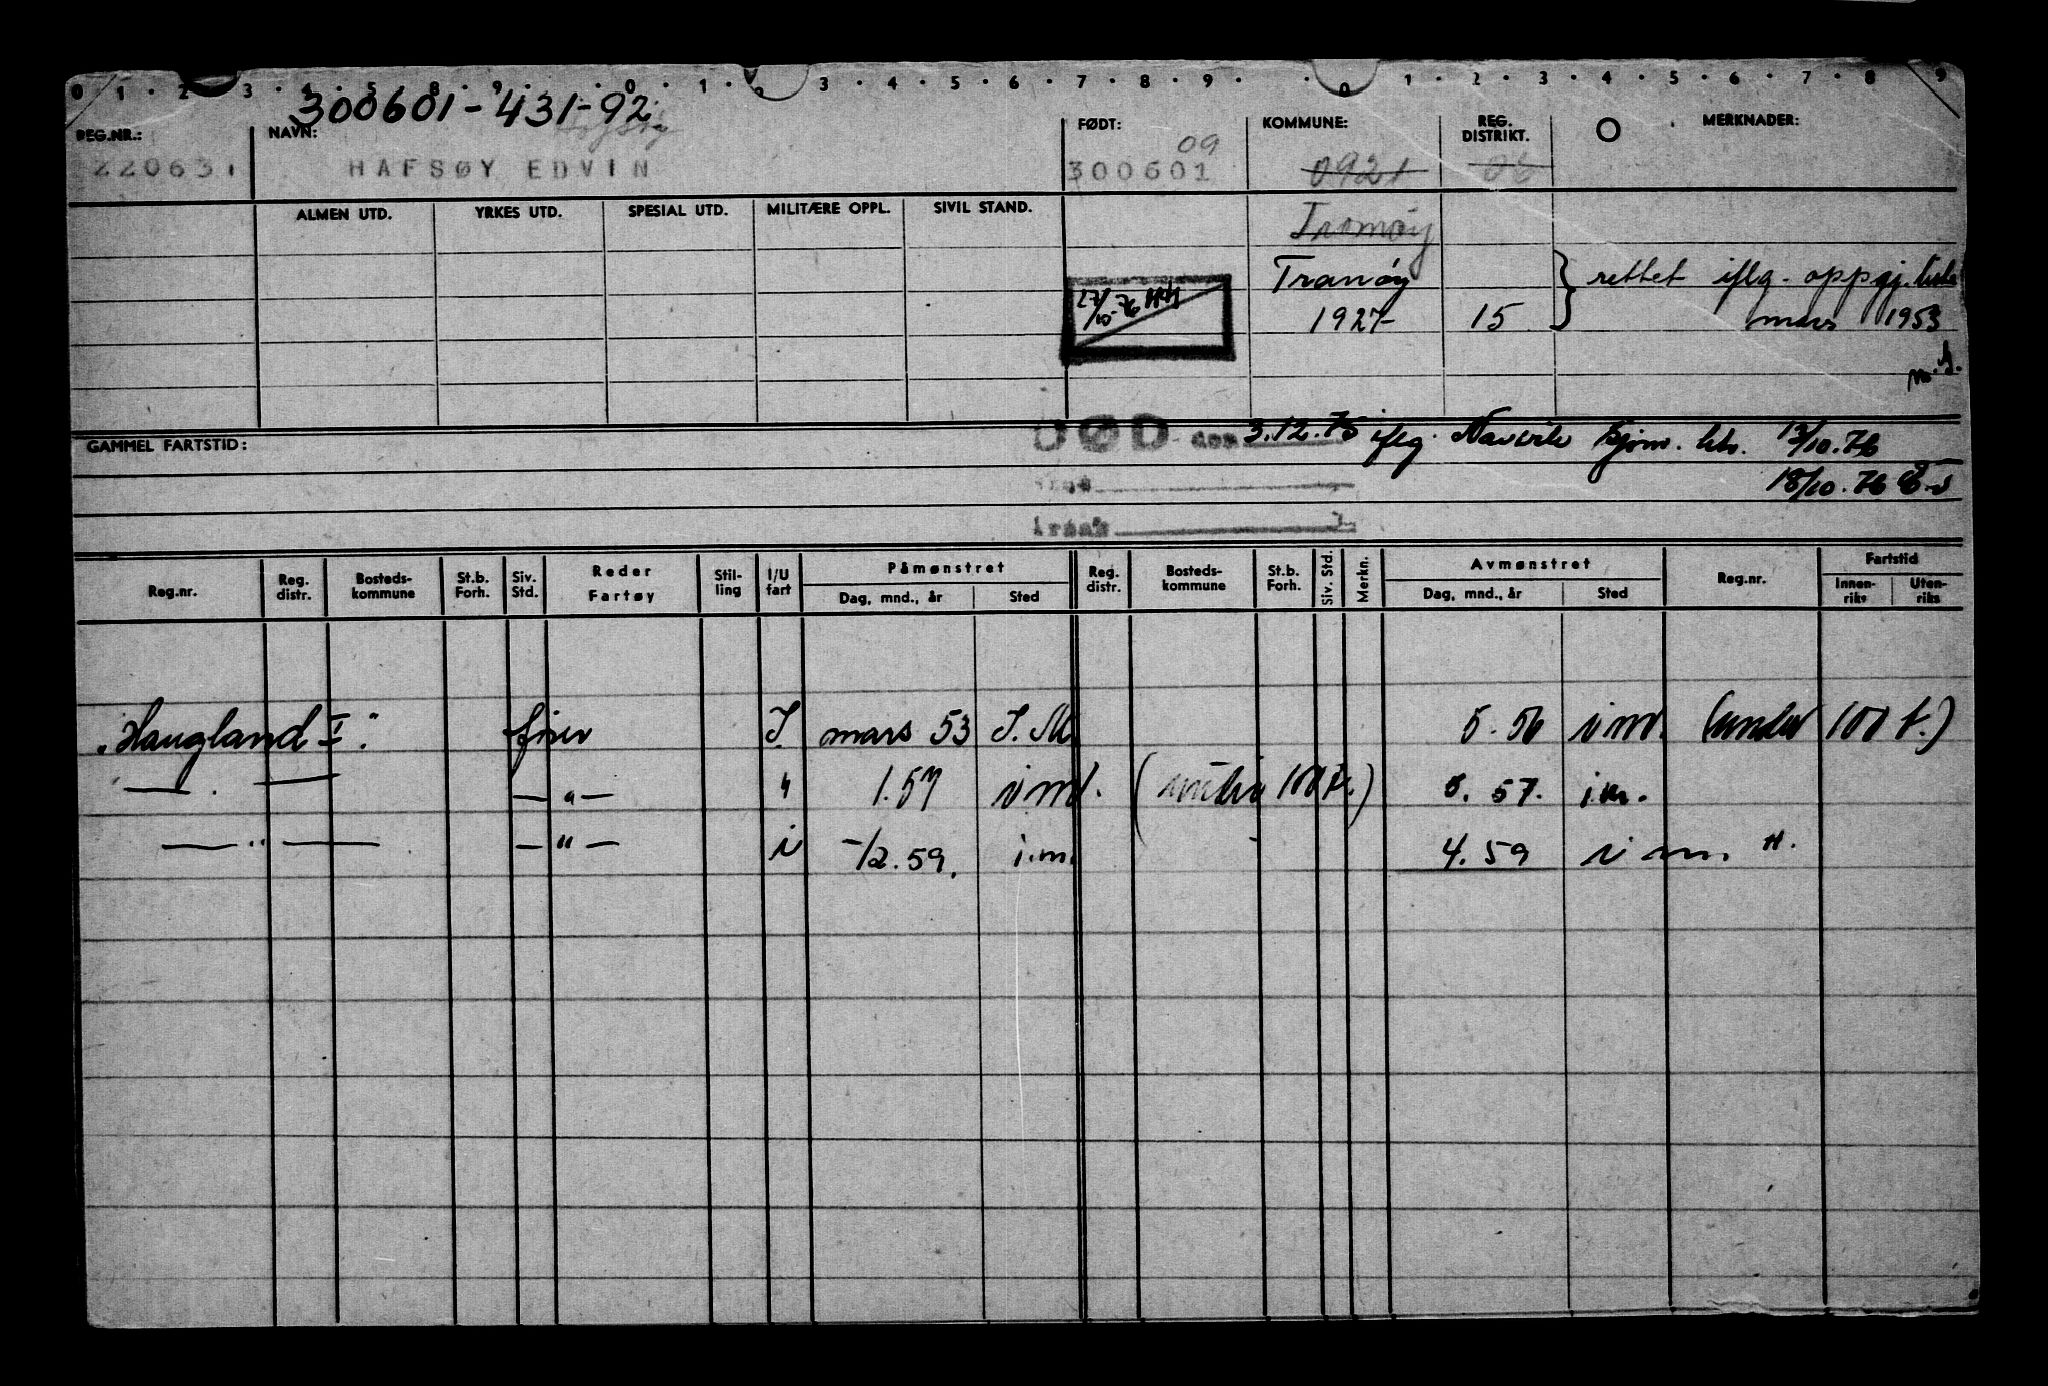 0 · 1 · 2 · 3 · 4 · 5 · 8 · 9 · 0 · 1 · 2 3 · 4 · 5 · 6 · 7 · 8 · 9 · · 0 1 · 2 · 3 · 4 · 5 · 6 · 7 · 8 9
300601-431-92
REG.NR.: NAVN: FØDT: KOMMUNE: REG. DISTRIKT. MERKNADER:
09
220631 HAFSØY EDVIN 300601 0921 06
ALMEN UTD. YRKES UTD. SPESIAL UTD. MILITÆRE OPPL. SIVIL STAND.
Tromøy
Tranøy } rettet iflg. oppgj. liste
27/10-76 HH 1927 15 mars 1953
GAMMEL FARTSTID: DØD den 3.12.75 iflg. Narvik 13/10.76
18/10.76
årsak
Reg.nr. Reg. distr. Bosteds- kommune St.b. Forh. Siv. Std. Reder Fartøy Stil- ling I/U fart Påmønstret Dag, mnd., år Sted Reg. distr. Bosteds- kommune St.b. Forh. Siv. Std. Merkn. Avmønstret Dag, mnd., år Sted Reg.nr. Fartstid Innen- riks Uten- riks
"Haugland I" fisker I. mars 53 I.M. 5.56 i m. (under 100 t.)
— — — " — " 1.57 i m. (under 100 t.) 57. i.m.
— " — — " — i -/2.59. i.m. 4.59 i m. "